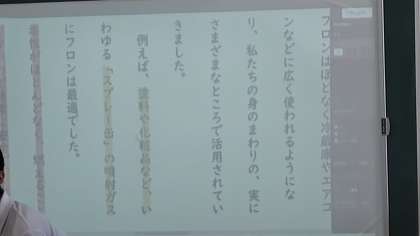 フロンはほとなく冷蔵庫やエアコ
ンなどに広く使われるようにな
り、私たちの身のまわりの、実に
さまざまなところで活用されてい
きました。
例えば、塗料や化粧品など、い
わゆる「スプレー缶」の噴射ガス
にフロンは最適でした。